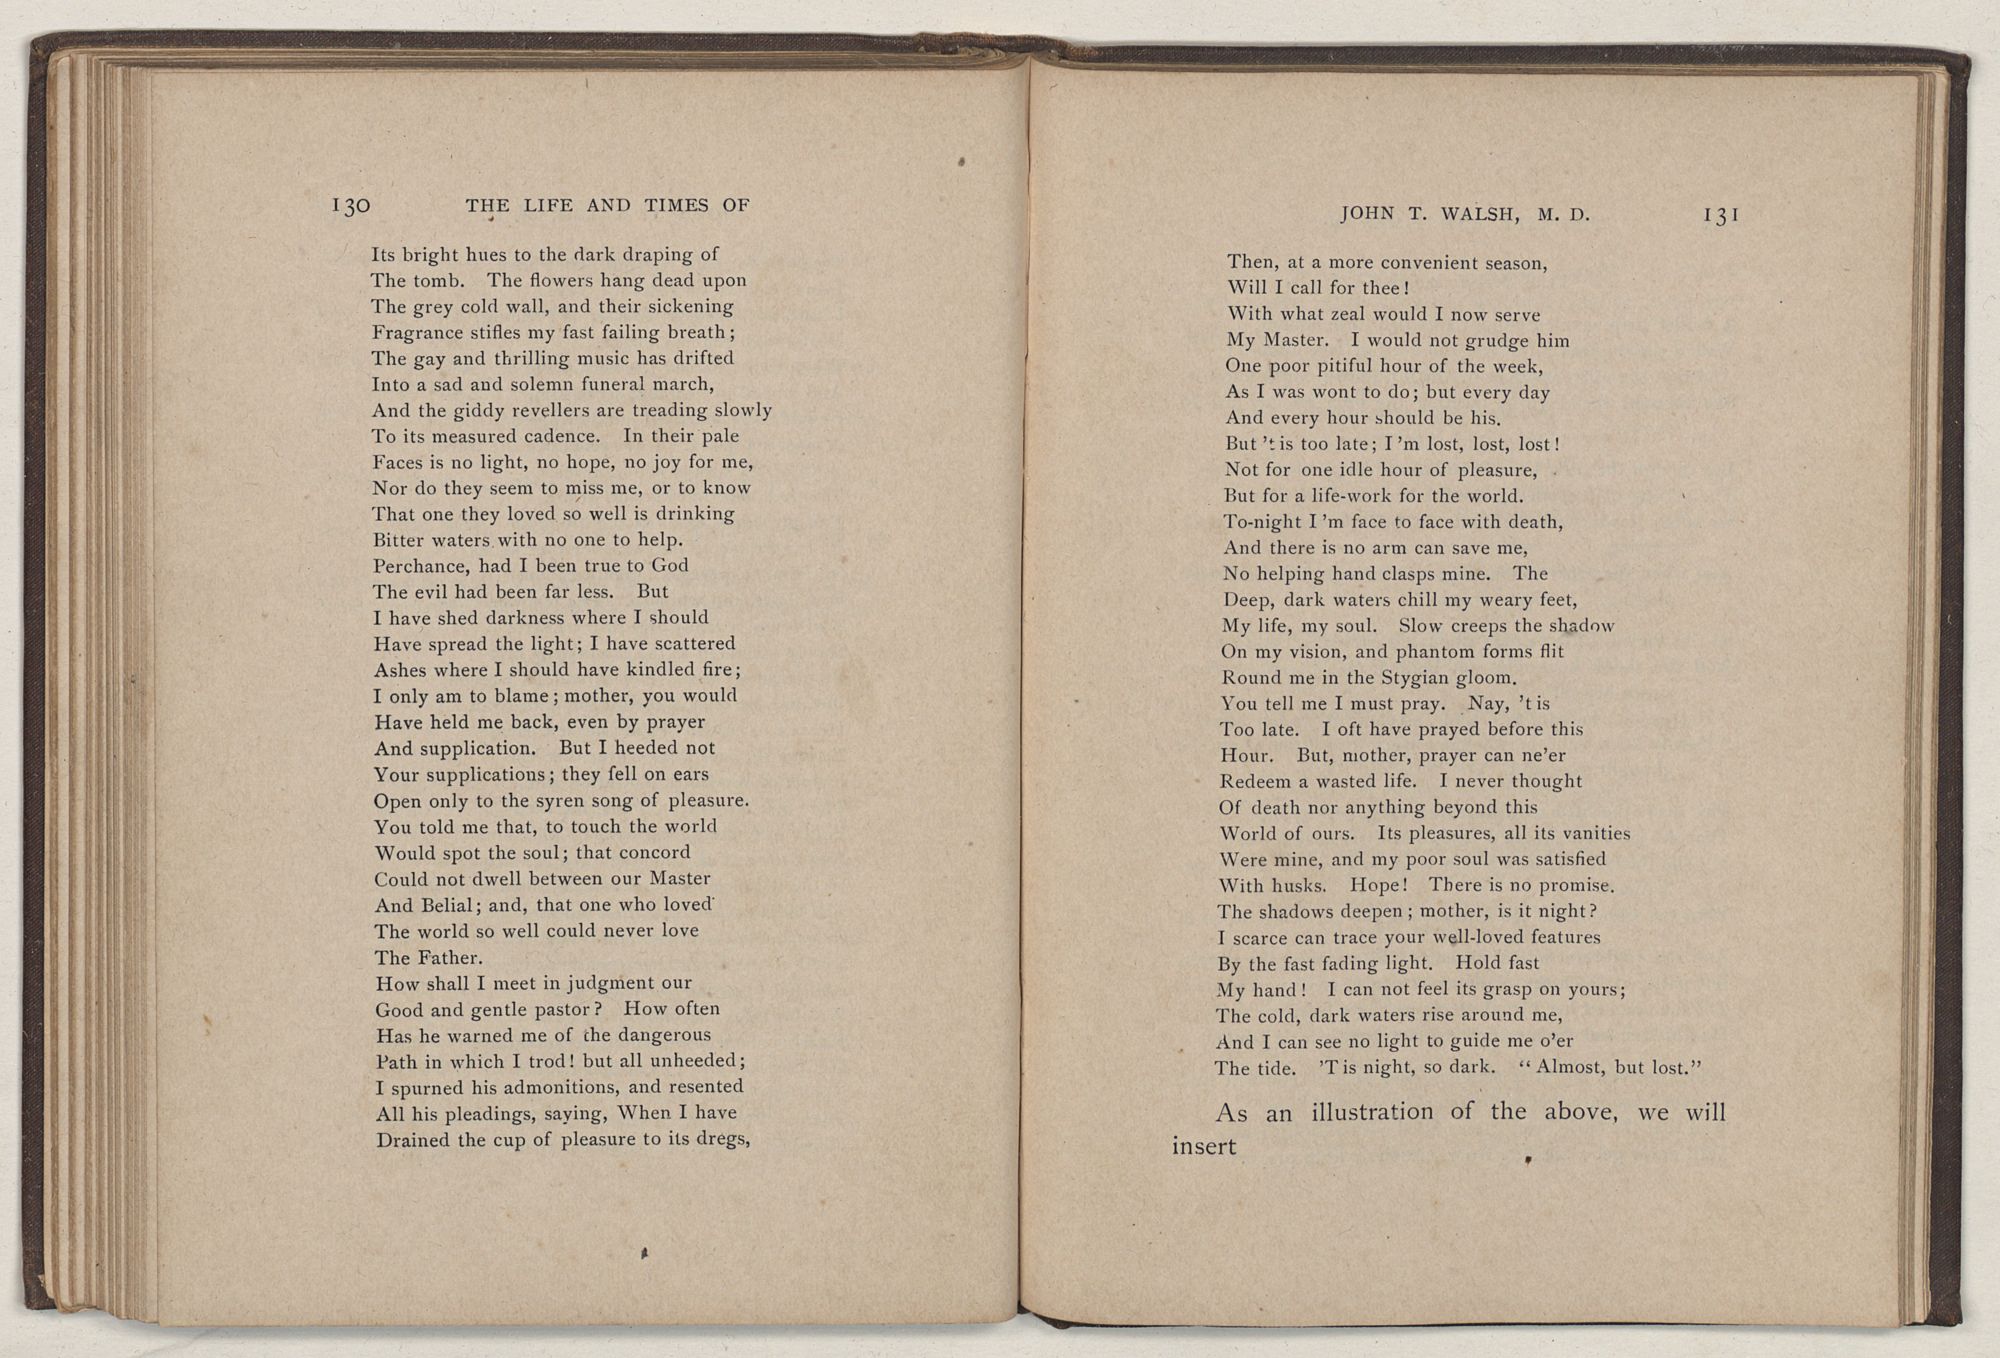 130 THE LIFE AND TIMES OF
Its bright hues to the dark draping of
The tomb. The flowers hang dead upon
The grey cold wall, and their sickening
Fragrance stifles my fast failing breath;
The gay and thrilling music has drifted
Into a sad and solemn funeral march,
And the giddy revellers are treading slowly
To its measured cadence. In their pale
Faces is no light, no hope, no joy for me,
Nor do they seem to miss me, or to know
That one they loved so well is drinking
Bitter waters with no one to help.
Perchance, had I been true to God
The evil had been far less. But
I have shed darkness where I should
Have spread the light; I have scattered
Ashes where I should have kindled fire;
I only am to blame; mother, you would
Have held me back, even by prayer
And supplication. But I heeded not
Your supplications; they fell on ears
Open only to the syren song of pleasure.
You told me that, to touch the world
Would spot the soul; that concord
Could not dwell between our Master
And Belial; and, that one who loved
The world so well could never love
The Father.
How shall I meet in judgment our
Good and gentle pastor? How often
Has he warned me of the dangerous
Path in which I trod! but all unheeded;
I spurned his admonitions, and resented
All his pleadings, saying, When I have
Drained the cup of pleasure to its dregs,
JOHN T. WALSH, M. D. 131
Then, at a more convenient season,
Will I call for thee!
With what zeal would I now serve
My Master. I would not grudge him
One poor pitiful hour of the week,
As I was wont to do; but every day
And every hour should be his.
But 't is too late; I 'm lost, lost, lost!
Not for one idle hour of pleasure,
But for a life-work for the world.
To-night I 'm face to face with death,
And there is no arm can save me,
No helping hand clasps mine. The
Deep, dark waters chill my weary feet,
My life, my soul. Slow creeps the shadow
On my vision, and phantom forms flit
Round me in the Stygian gloom.
You tell me I must pray. Nay, 't is
Too late. I oft have prayed before this
Hour. But, mother, prayer can ne'er
Redeem a wasted life. I never thought
Of death nor anything beyond this
World of ours. Its pleasures, all its vanities
Were mine, and my poor soul was satisfied
With husks. Hope! There is no promise.
The shadows deepen; mother, is it night?
I scarce can trace your well-loved features
By the fast fading light. Hold fast
My hand! I can not feel its grasp on yours;
The cold, dark waters rise around me,
And I can see no light to guide me o'er
The tide. 'T is night, so dark. "Almost, but lost."
As an illustration of the above, we will
insert